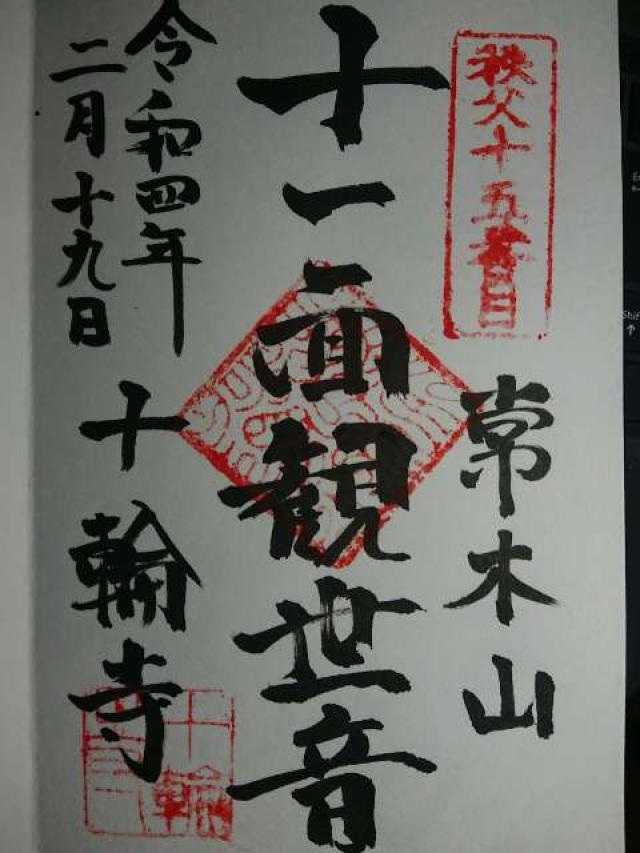 秩父十五番目
常木山
十一面観世音
令和四年
二月十九日
十輪寺
十輪